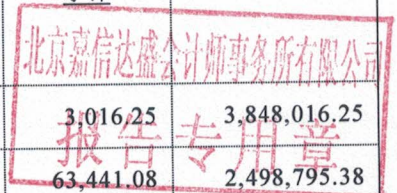 北京嘉信达盛会计师事务所有限公司
3,016.25 3,848,016.25
报告专用章
63,441.08 2,498,795.38